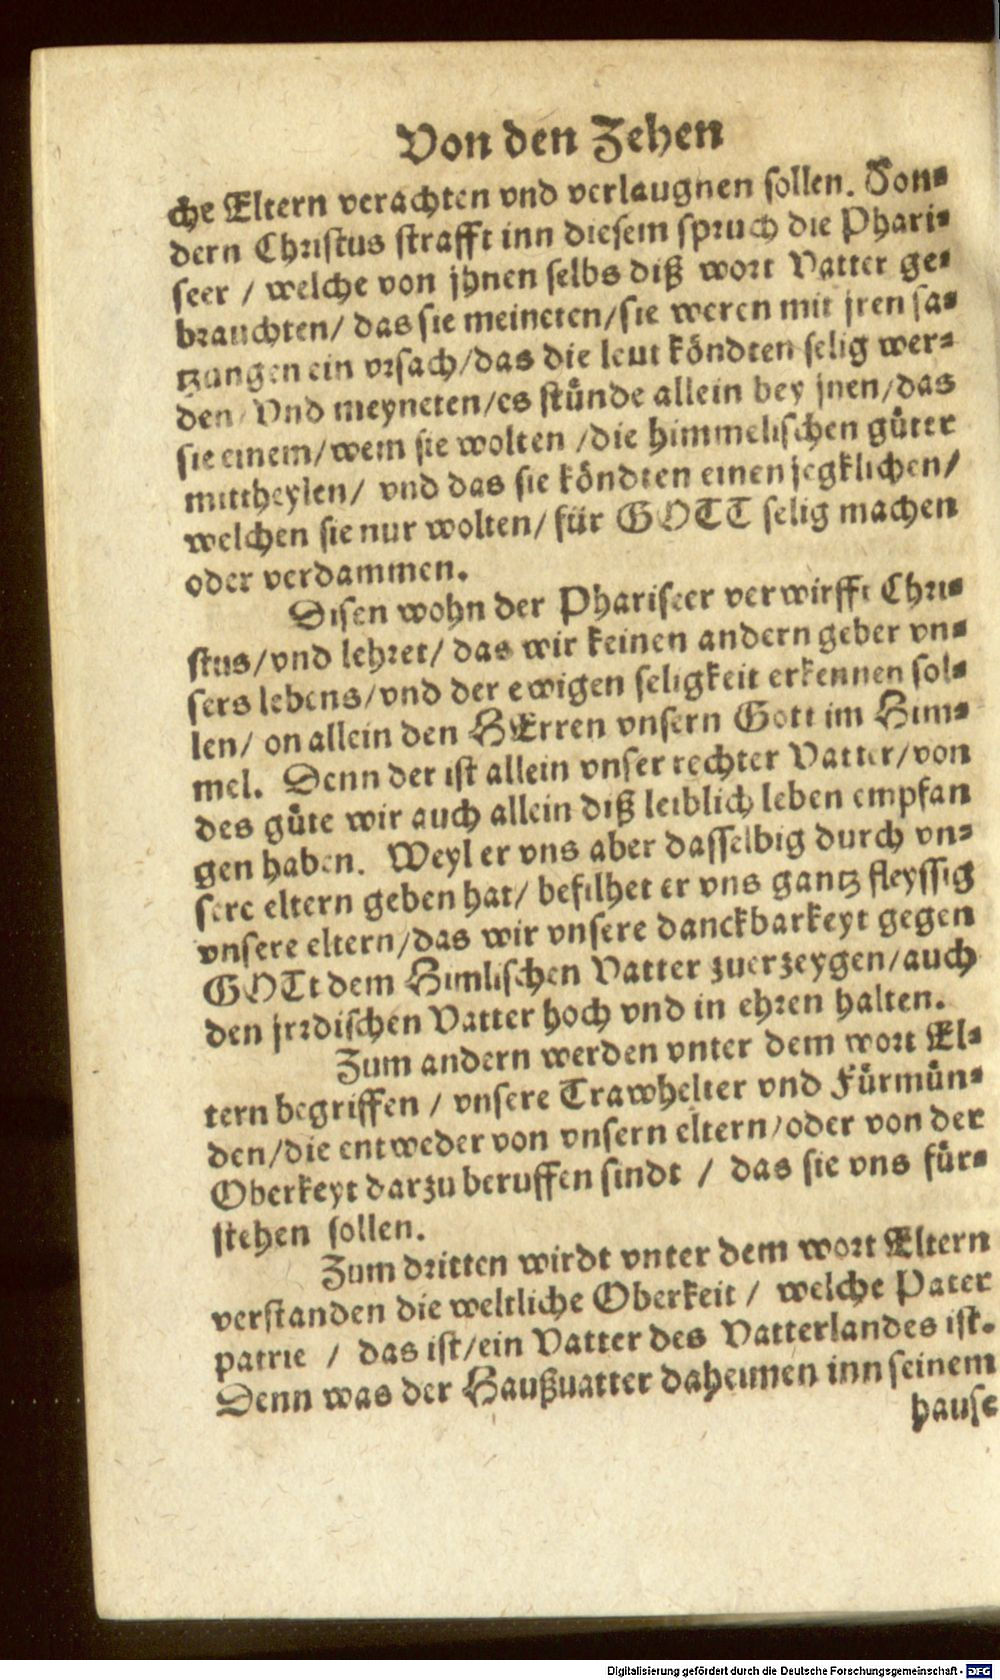 Von den Zehen
che Eltern verachten vnd verlaugnen sollen. Son-
dern Christus strafft inn diesem spruch die Phari-
seer / welche von jhnen selbs diß wort Vatter ge-
brauchten/ das sie meineten/sie weren mit jren sa-
tzungen ein vrsach/das die leut köndten selig wer-
den/ Vnd meyneten/es stünde allein bey jnen/das
sie einem/wem sie wolten /die himmelischen güter
mittheylen/ vnd das sie köndten einen jegklichen/
welchen sie nur wolten/ für GOTT selig machen
oder verdammen.
Disen wohn der Phariseer verwirfft Chri-
stus/vnd lehret/ das wir keinen andern geber vn-
sers lebens/vnd der ewigen seligkeit erkennen sol-
len/ on allein den HErren vnsern Gott im Him-
mel. Denn der ist allein vnser rechter Vatter/von
des güte wir auch allein diß leiblich leben empfan
gen haben. Weyl er vns aber dasselbig durch vn-
sere eltern geben hat/ befilhet er vns gantz fleyssig
vnsere eltern/das wir vnsere danckbarkeyt gegen
GOTt dem Himlischen Vatter zuerzeygen/auch
den jrrdischen Vatter hoch vnd in ehren halten.
Zum andern werden vnter dem wort El-
tern begriffen / vnsere Trawhelter vnd Fürmün-
den/die entweder von vnsern eltern/oder von der
Oberkeyt darzu beruffen sindt / das sie vns für-
stehen sollen.
Zum dritten wirdt vnter dem wort Eltern
verstanden die weltliche Oberkeit / welche Pater
patrie / das ist/ein Vatter des Vatterlandes ist.
Denn was der Haußuatter daheimen inn seinem
hause
Digitalisierung gefördert durch die Deutsche Forschungsgemeinschaft - DFG